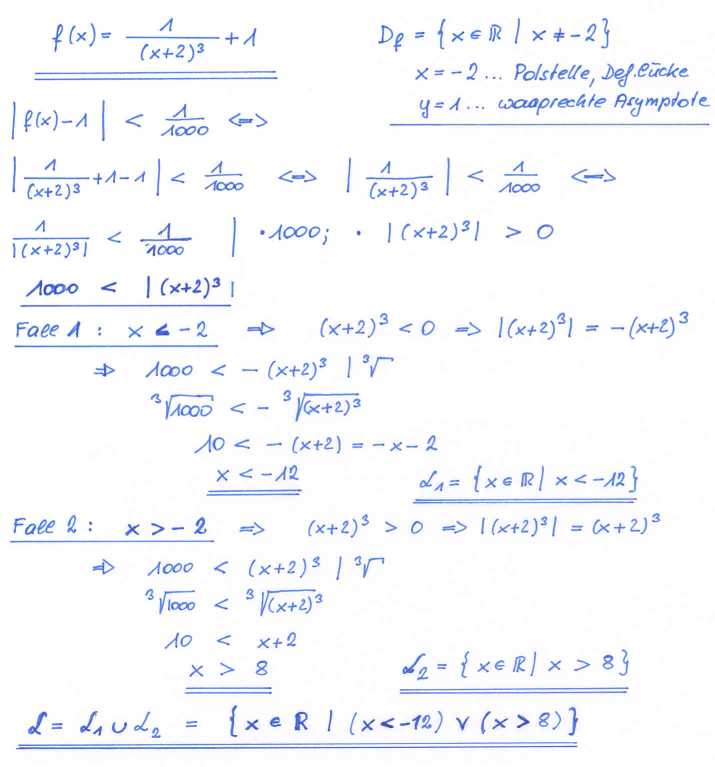 f(x) = 1/(x+2)³ + 1
D_f = {x ∈ ℝ | x ≠ -2}
x = -2 ... Polstelle, Def.lücke
y = 1 ... waagrechte Asymptote
|f(x) - 1| < 1/1000 <=>
|1/(x+2)³ + 1 - 1| < 1/1000 <=> |1/(x+2)³| < 1/1000 <=>
1/|(x+2)³| < 1/1000 | ·1000; · |(x+2)³| > 0
1000 < |(x+2)³|
Fall 1: x < -2 => (x+2)³ < 0 => |(x+2)³| = -(x+2)³
=> 1000 < -(x+2)³ | ³√
³√1000 < - ³√(x+2)³
10 < -(x+2) = -x-2
x < -12
L₁ = {x ∈ ℝ | x < -12}
Fall 2: x > -2 => (x+2)³ > 0 => |(x+2)³| = (x+2)³
=> 1000 < (x+2)³ | ³√
³√1000 < ³√(x+2)³
10 < x+2
x > 8
L₂ = {x ∈ ℝ | x > 8}
L = L₁ ∪ L₂ = {x ∈ ℝ | (x < -12) ∨ (x > 8)}